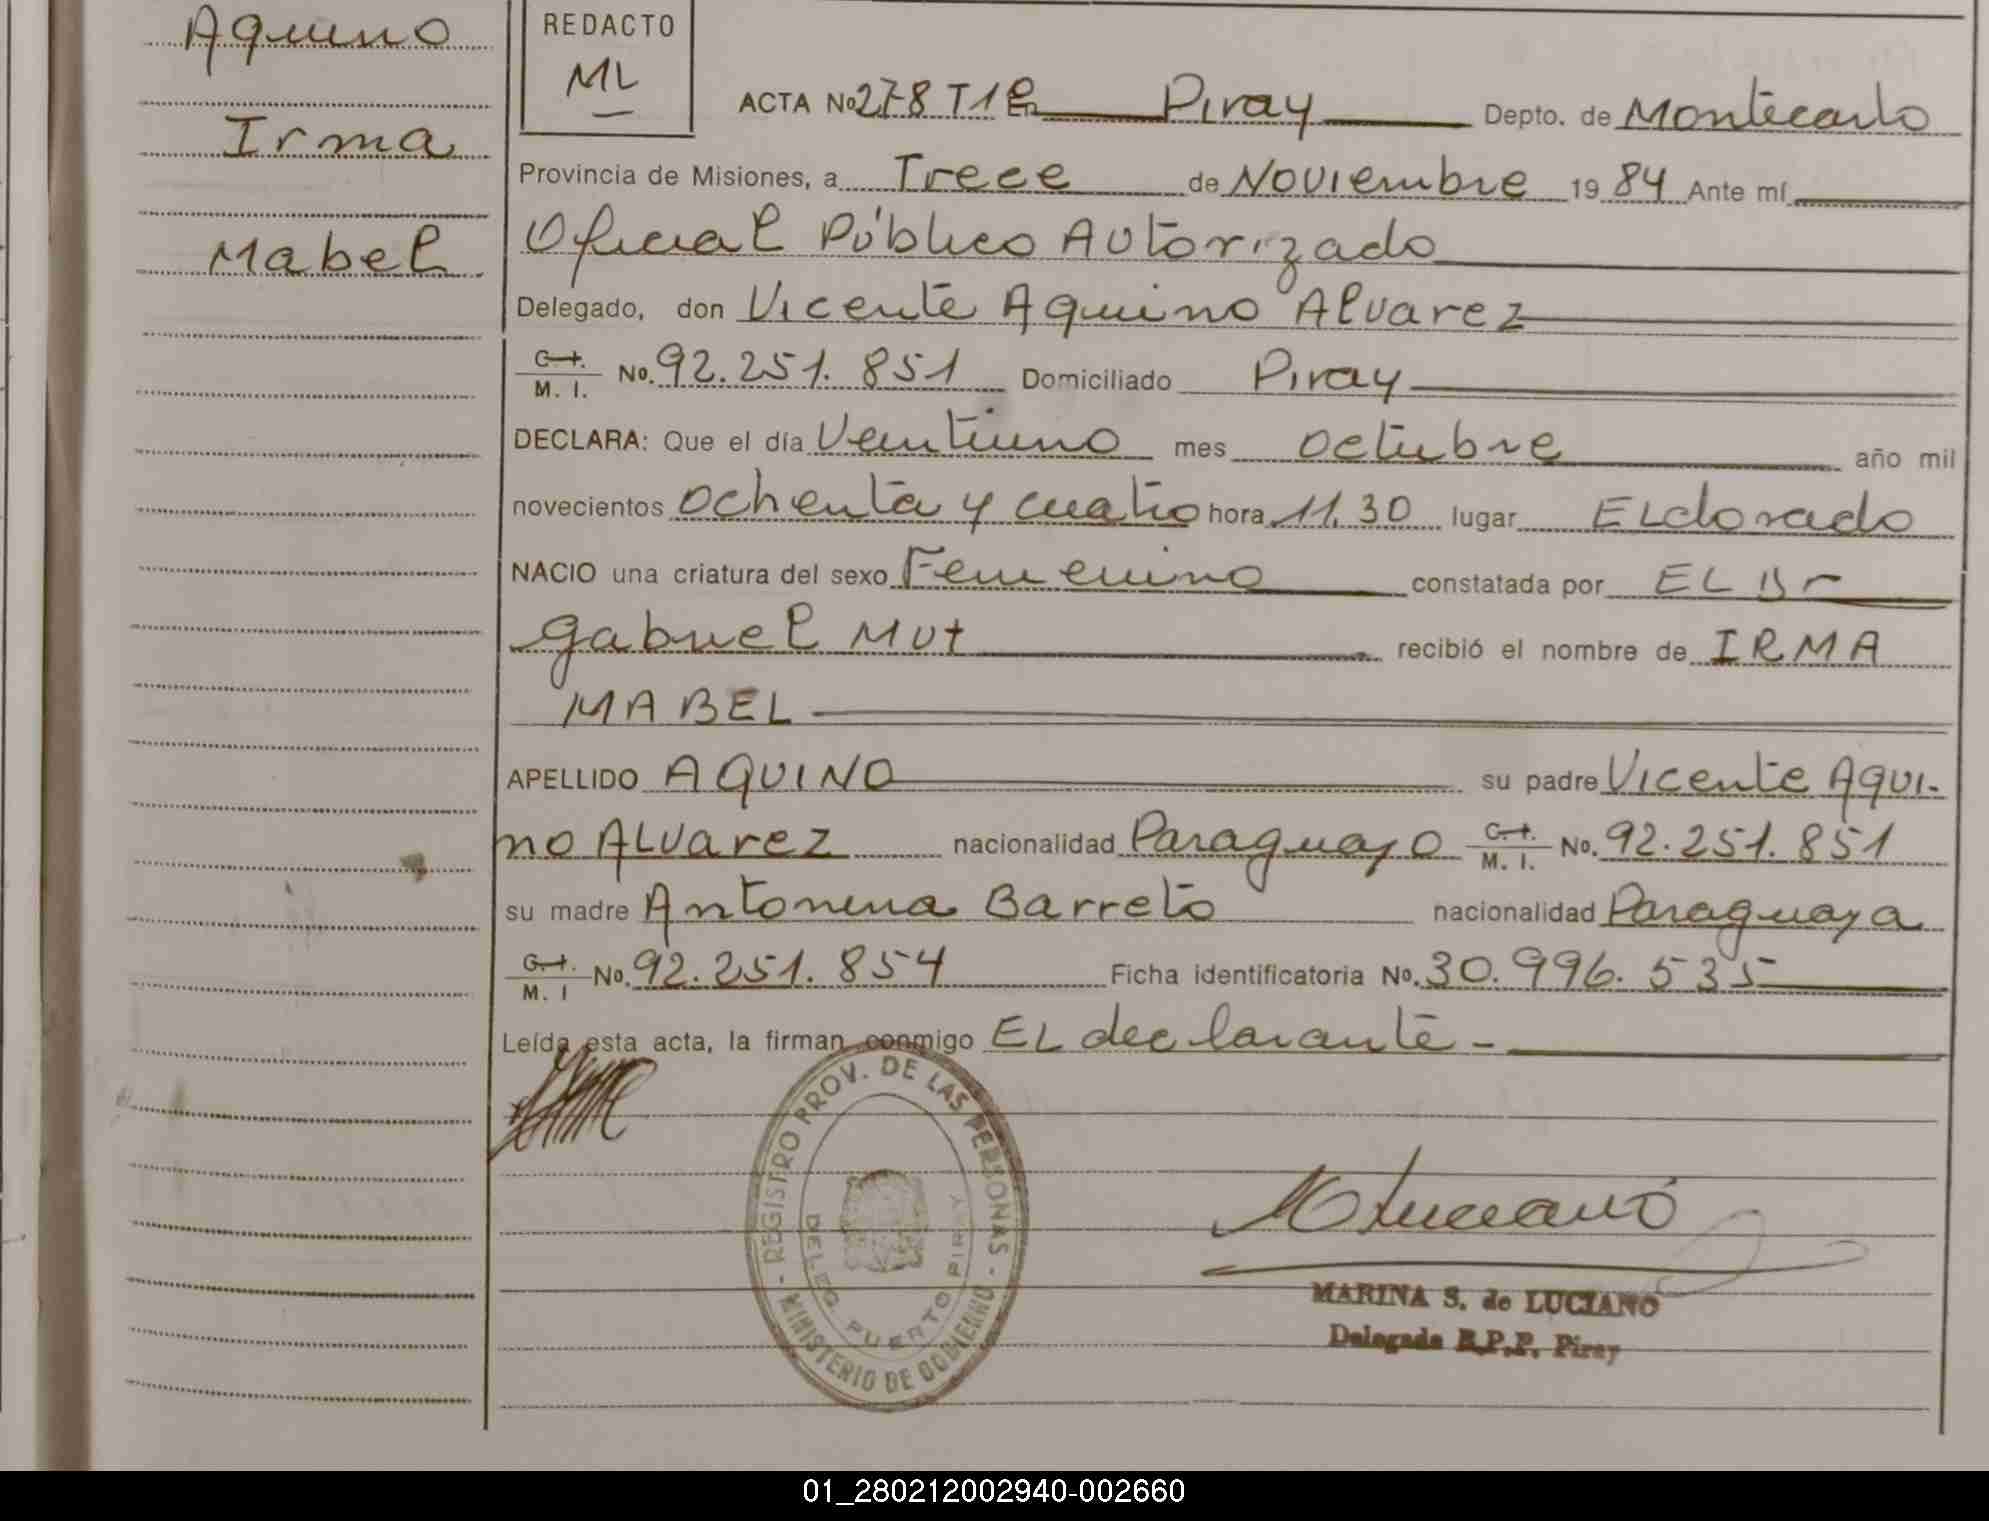 Aquino
Irma
Mabel
REDACTO
ML
ACTA No 278 T1º En Piray Depto. de Montecarlo
Provincia de Misiones, a Trece de Noviembre 19 84 Ante mí
Oficial Público Autorizado
Delegado, don Vicente Aquino Alvarez
C. I.
M. I. No. 92.251.851 Domiciliado Piray
DECLARA: Que el día Ventiuno mes octubre año mil
novecientos ochenta y cuatro hora 11.30 lugar ELdorado
NACIO una criatura del sexo Femenino constatada por EL Dr
Gabriel Mut recibió el nombre de IRMA
MABEL
APELLIDO AQUINO su padre Vicente Aqui-
no ALvarez nacionalidad Paraguayo C. I. M. I. No. 92.251.851
su madre Antonina Barreto nacionalidad Paraguaya
C. I.
M. I No. 92.251.854 Ficha identificatoria No. 30.996.535
Leída esta acta, la firman conmigo EL declarante -
- REGISTRO PROV. DE LAS PERSONAS -
MINISTERIO DE GOBIERNO
DELEG. PUERTO PIRAY
MARINA S. de LUCIANO
Delegada R.P.P. Piray
01_280212002940-002660